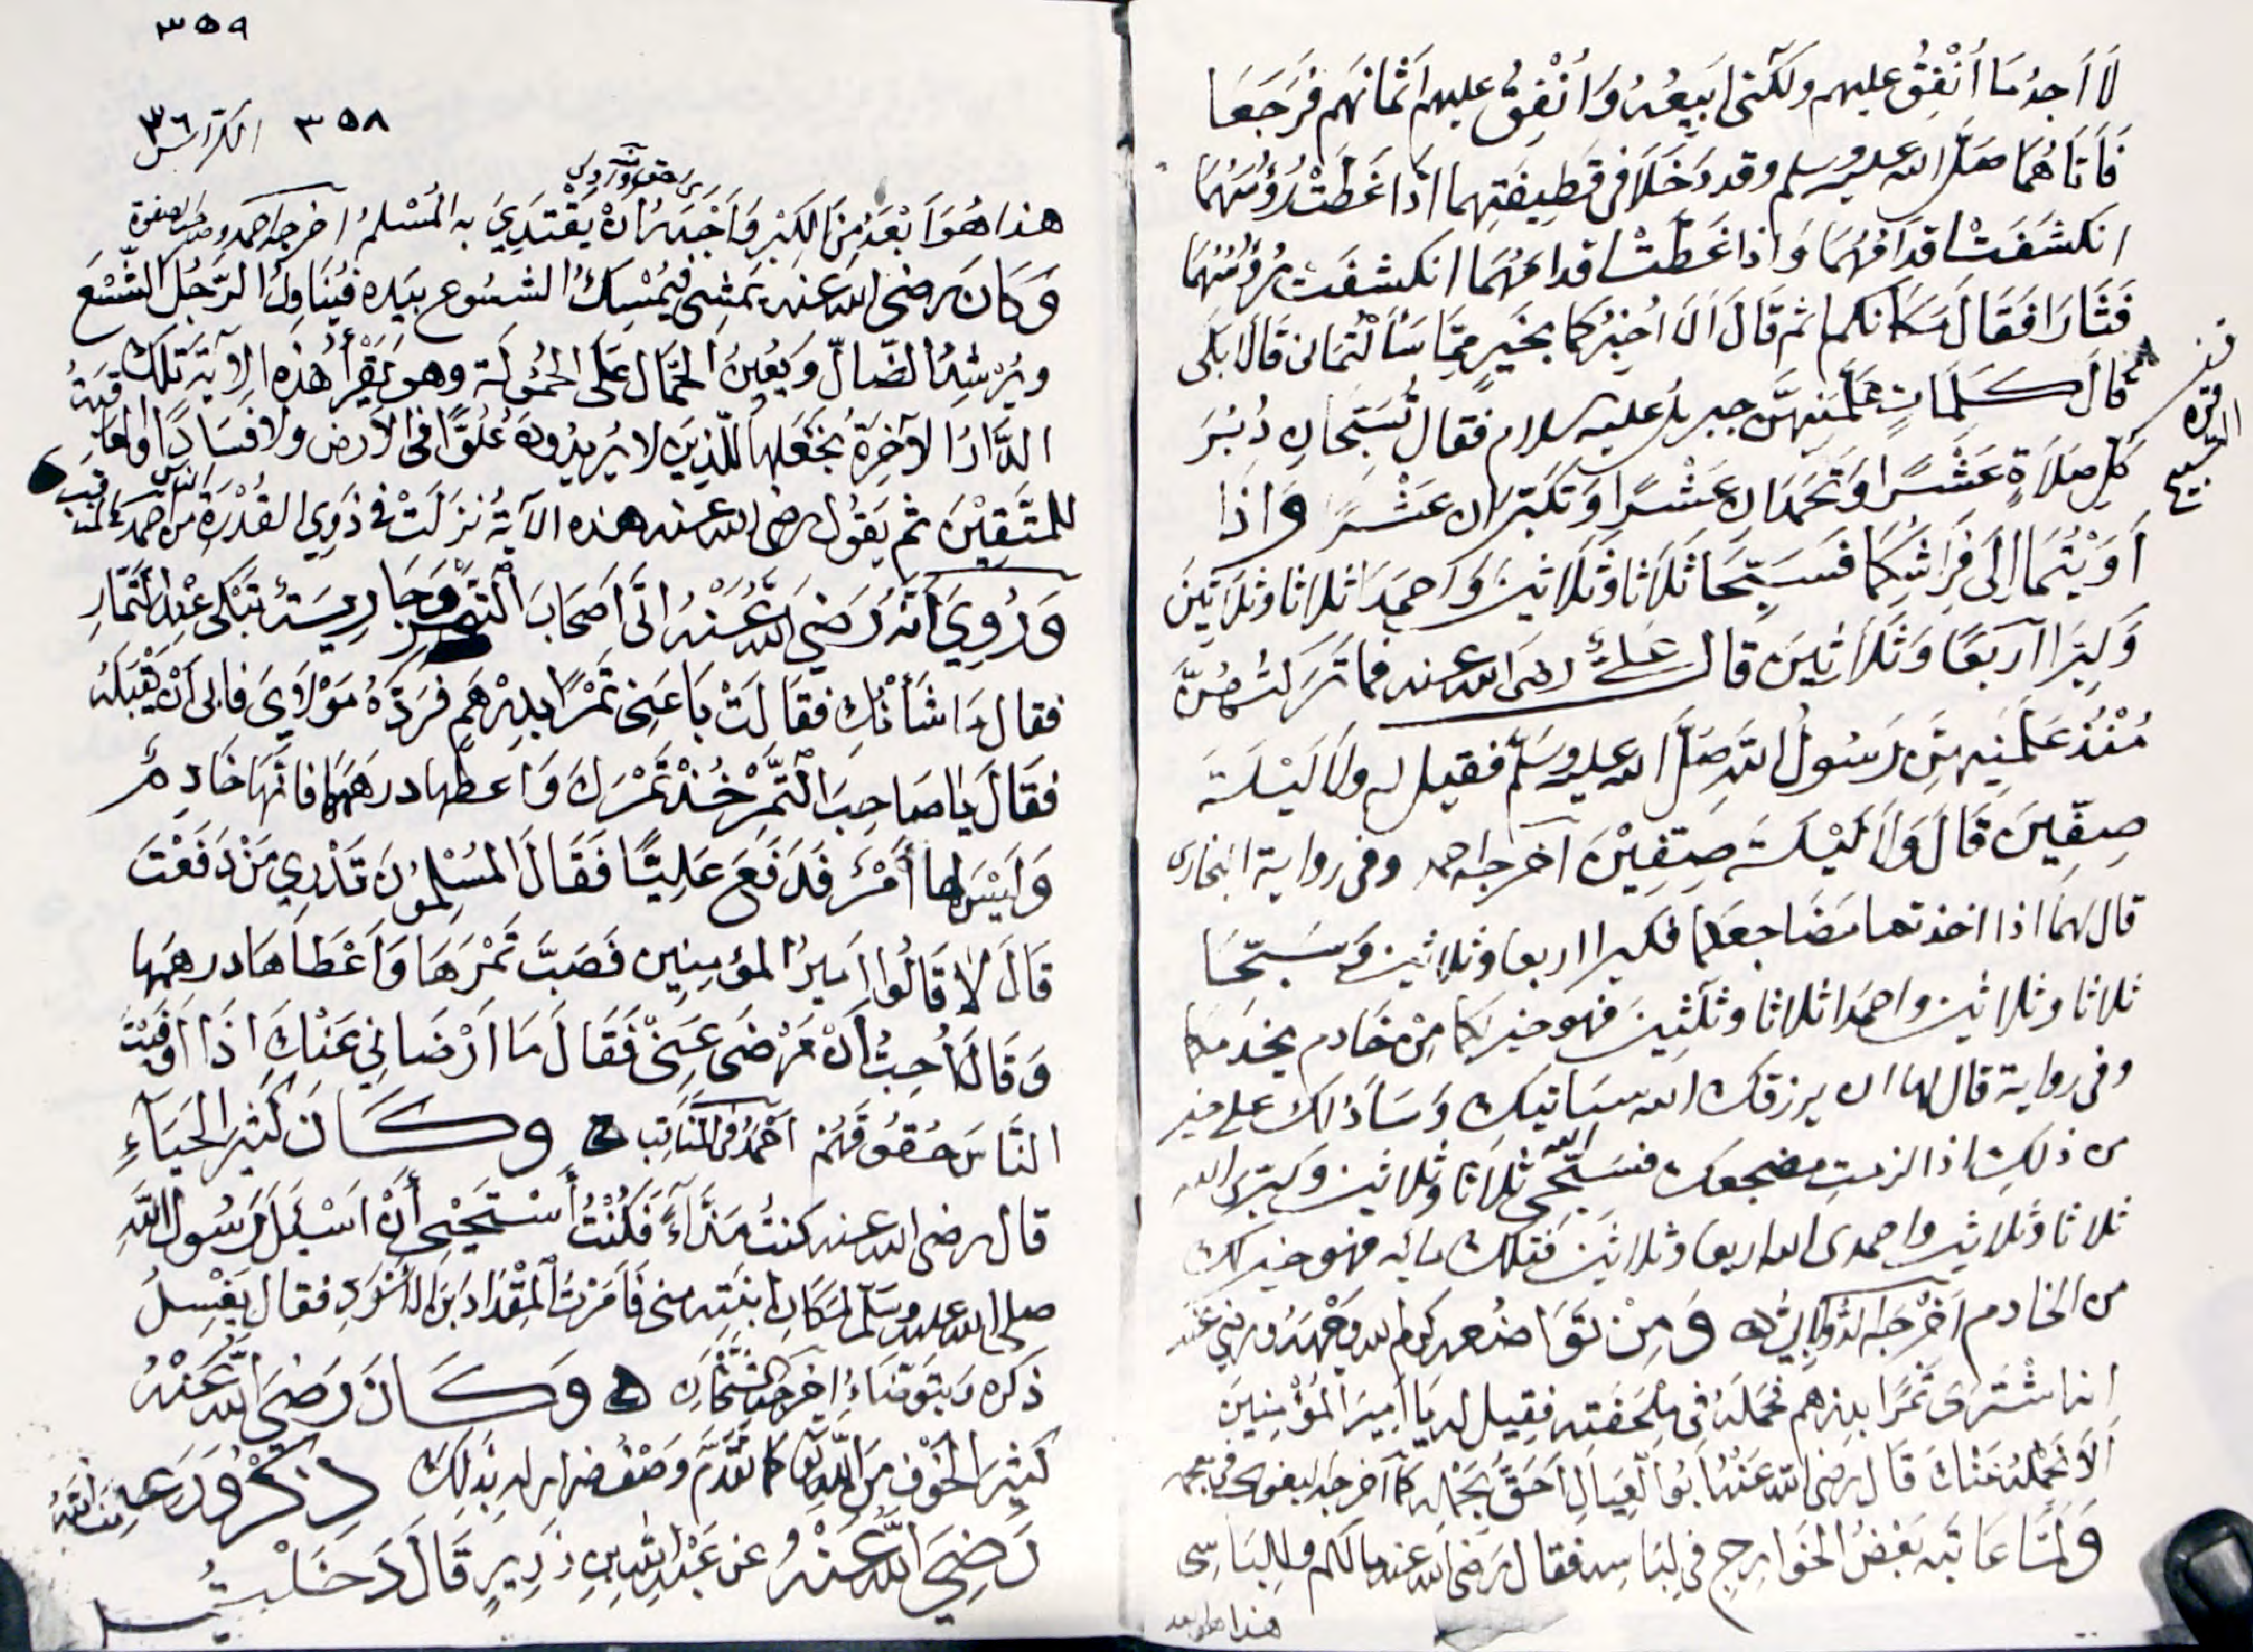 لَا أَجِدُ مَا أُنْفِقُ عليهم ولكنى ابِيعُهُ وَأُنْفِقُ عليهم أثمانهم فَرَجَعَا
فَأَتَاهُمَا صَلَّى الله عليه وسلم وقد دَخَلَا فى قَطِيفَتِهِما اذا غَطَّتْ رُؤُسَهُمَا
انكشَفَتْ اقدامُهُمَا وَاذا غَطَّتْ اقدامَهُمَا انكشفَت رُؤُسُهُمَا
فَثَارَا فَقَالَ مَكَانكما ثم قَالَ أَلَا أُخْبِرُكما بِخَيرٍ مِمَّا سَأَلْتُمَانى قَالَا بَلَى
قالَ كَلِمَاتٍ عَلَّمَنِيهِنَّ جبريلُ عليه السلام فقال تُسَبِّحَانِ دُبُرَ
كلِّ صَلَاةٍ عَشْرًا وَتَحْمَدَانِ عَشْرًا وَتُكَبِّرَانِ عَشْرًا وَاذَا
أَوَيْتُمَا إلَى فِرَاشِكُمَا فَسَبِّحَا ثَلَاثًا وَثَلَاثِينَ وَاحمَدَا ثلاثا وثلاثِينَ
وَكَبِّرَا أَربَعًا وَثَلَاثِينَ قال عَلِيٌّ رضَى الله عنه فما تَرَكتُهُنَّ
مُنْذُ عَلَّمَنِيهِنَّ رَسُولُ اللَّهِ صَلَّى الله عليه وَسَلَّم فقيل له ولا لَيْلَةَ
صِفِّينَ قَالَ وَلَا لَيْلَةَ صِفِّيْنَ أخرجه احمد وفى رواية البخارى
قال لهما اذا اخذتما مَضَاجِعَكُما فكبرا اربعا وثلاثين وَسَبِّحَا
ثلاثا وثلاثين واحمَدَا ثلاثا وثلثِينَ فهو خير لكما مِنْ خَادم يخدمكما
وفى رواية قال لها ان يرزقك الله سياتيك وَسَأَدُلك على خير
من ذلِكِ اذا لزمتِ مضجعك فسَبِّحِى اللّه ثلاثا وثلاثين وكبِّرى الله
ثلاثا وثلاثين واحمدى الله اربعا وثلاثين فتلك مائه فهو خير لك
من الخادم أَخْرَجَه الدُّولابِيُّ وَمِنْ تَوَاضُعِهِ كرم الله وَجْهَهُ ورضى عَنْهُ
انه اشْتَرَى تَمْرًا بدرهم فحَمَلَهُ فى مِلْحَفَتِهِ فقِيل له يَا أَمِيرَ المُؤْمِنِينَ
أَلَا نَحْمِلُهُ عَنْكَ قَال رَضَى اللّه عَنْهُ أبُو العِيَالِ أَحَقُّ بِحَمْلِهِ كما أخرجه البغوى فى معجمه
وَلَمَّا عَاتَبَه بَعْضُ الخَوارِجِ فى لِبَاسِهِ فقال رَضَى الله عنه مالكم ولِلِبَاسِى
هذا هو ابعد
التسبيح
٣٥٩
٣٥٨ الكراس ٣٦
هذا هُوَ أَبْعَدُ مِنَ الكِبْرِ وَأَجْدَرُ أَنْ يَقْتَدِيَ به المُسْلمُ اخرجه احمد وصاحب الصفوة
وَكَانَ رضى الله عنه يَمْشِى فيُمْسِكُ الشسُوع بيَدِه فيُنَاوِلُ الرَّجُلَ الشِّسْعَ
ويُرْشِدُ الضَّالَّ وَيُعِينُ الحَمَّالَ عَلَى الحُمُولَة وهو يَقْرَأُ هَذِهِ الآيَةَ تِلْكَ
الدَّارُ الآخِرَةُ نجعَلُهَا للَّذِينَ لا يُريدُونَ عُلُوًّا فى الأرض ولا فَسَادًا والعَاقِبَةُ
للمُتَّقِيْنَ ثم يَقُولُ رضى الله عنه هذه الآيَةُ نزَلَتْ فى ذَوِي القُدْرَةِ مِنَ الناس احمد فى المناقب
وَرُوِيَ أَنَّهُ رَضِيَ اللّه عَنْهُ أتَى أصحَابَ التَّمْرِ وَجَارِيَةٌ تَبْكِى عِنْدَ التَّمَّارِ
فقال مَا شَأْنُكِ فقَالَتْ بَاعَنِى تَمْرًا بِدِرْهَمٍ فرَدَّهُ مَوْلَايَ فابَى أَنْ يَقْبَلَهُ
فقَالَ يَا صَاحِبَ التَّمْرِ خُذْ تَمْرَكَ وَاعطها درهَمَهَا فانَّهَا خَادِمٌ
وَلَيْسَ لها أَمْرٌ فَدَفَعَ عَلِيًّا فَقَالَ المُسْلِمُونَ تَدْرِي مَنْ دَفَعْتَ
قَالَ لا قَالُوا أَمِيرُ المؤمِنِين فَصَبَّ تَمْرَهَا وَأَعْطَاهَا درهمها
وَقَالَ أُحِبُّ أَنْ تَرْضَى عَنِّى فَقَالَ مَا أَرْضَانِي عَنْكَ اذَا أَوْفَيْتَ
النَّاسَ حُقُوقَهُم أحْمَدُ فى المَنَاقِب وكَانَ كَثِيرَ الحَيَاءِ
قال رضى الله عنه كنتُ مَذَّاءً فَكُنْتُ أَسْتَحْيِى أَنْ أَسْئَلَ رَسُولَ اللَّهِ
صلى الله عليه وسلم لمَكَانِ ابنَتِهِ منى فَأَمَرْتُ المِقْدَادَ بنَ الأَسْوَدِ فقال يَغْسِلُ
ذَكَرَه وَيَتَوَضَّاءُ اخرجه الشيخَانِ وَكَانَ رَضَى اللّه عَنْهُ
كَثِيرَ الخَوْفِ مِنَ اللَّهِ كما تَقَدَّمَ وَصْفُ ضرار له بذَلِكَ ذِكْرُ وَرَعِهِ
رَضِيَ اللَّهُ عَنْهُ عن عَبْدِ اللَّهِ بنِ زُرَيرٍ قَالَ دَخَلْتُ